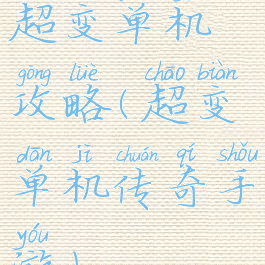 超变单机
gōng lüè chāo biàn
攻略(超变
dān jī chuán qí shǒu
单机传奇手
yóu
游)